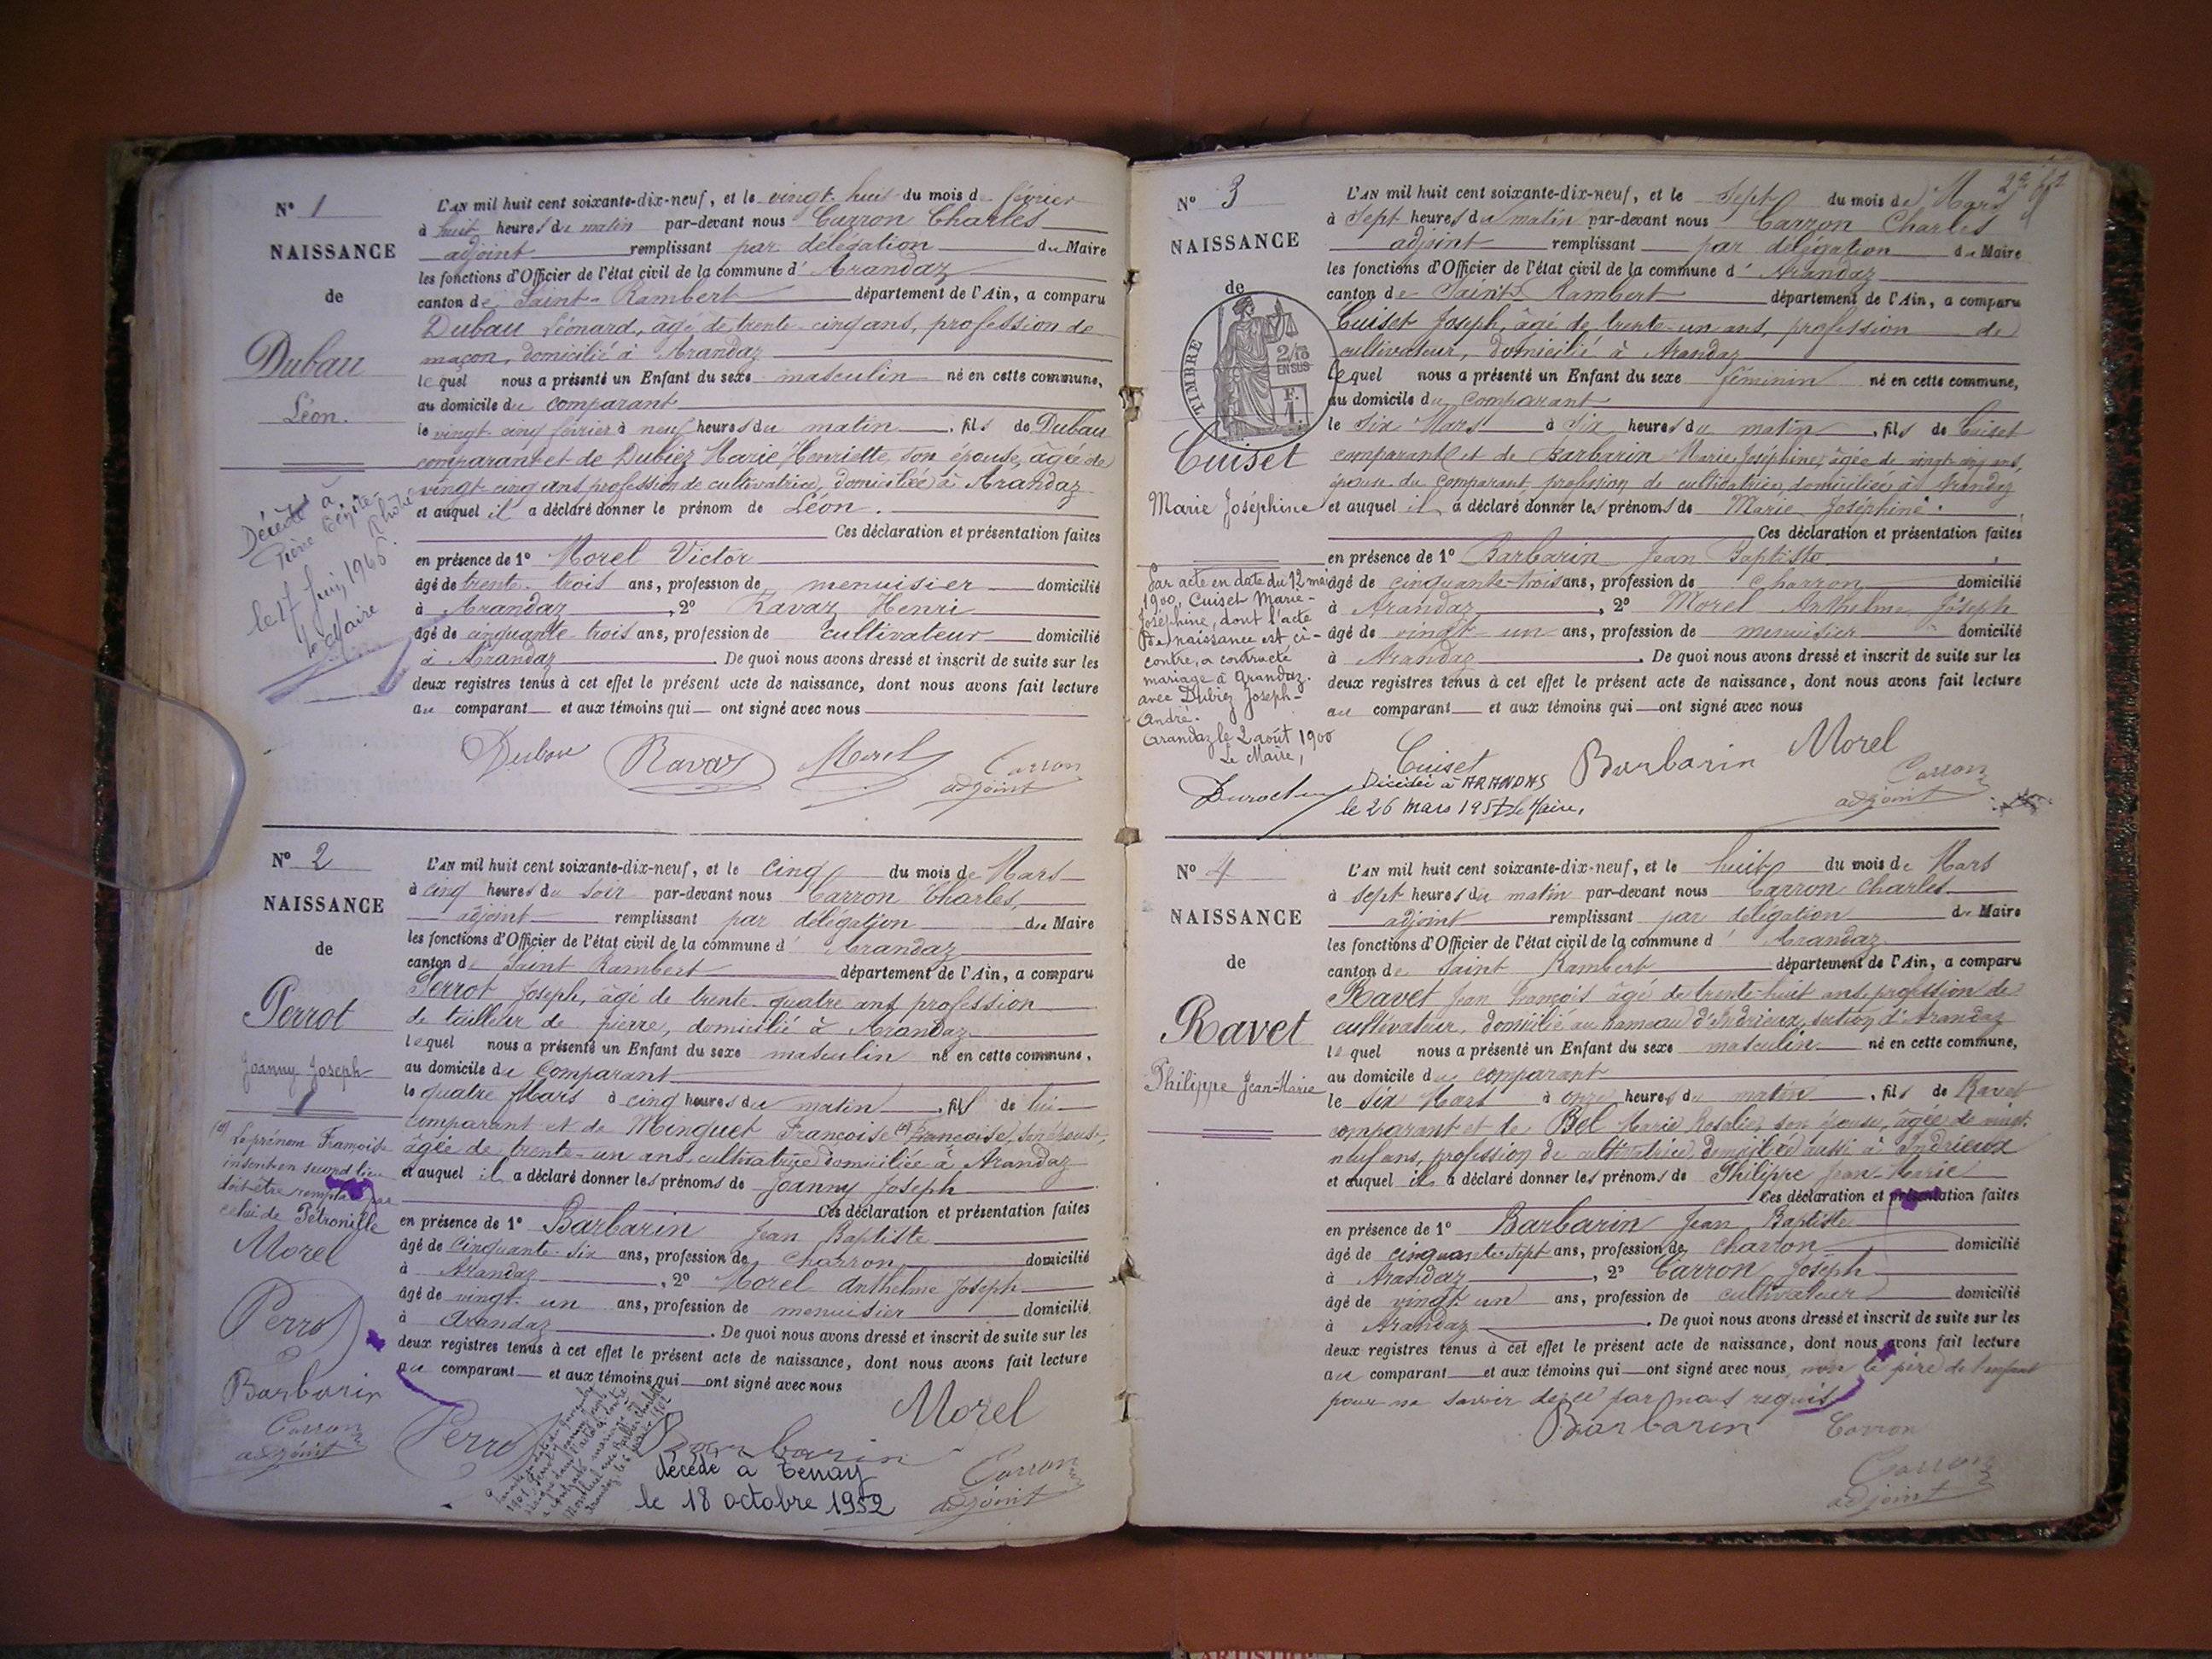 N° 1
NAISSANCE
de
Dubau
Léon.
Décédé à
Pierre-Bénite
Rhône
le 17 Juin 1965.
Le Maire
L'AN mil huit cent soixante-dix-neuf, et le vingt-huit du mois de février
à huit heures du matin par-devant nous Carron Charles
adjoint remplissant par délégation du Maire
les fonctions d'Officier de l'état civil de la commune d'Arandaz
canton de Saint-Rambert département de l'Ain, a comparu
Dubau Léonard, âgé de trente-cinq ans, profession de
maçon, domicilié à Arandaz
lequel nous a présenté un Enfant du sexe masculin né en cette commune,
au domicile du comparant
le vingt-cinq février à neuf heures du matin, fils de Dubau
comparant et de Dubiez Marie Henriette, son épouse, âgée de
vingt-cinq ans profession de cultivatrice, domiciliée à Arandaz
et auquel il a déclaré donner le prénom de Léon.
Ces déclaration et présentation faites
en présence de 1° Morel Victor
âgé de trente-trois ans, profession de menuisier domicilié
à Arandaz, 2° Ravaz Henri
âgé de cinquante-trois ans, profession de cultivateur domicilié
à Arandaz. De quoi nous avons dressé et inscrit de suite sur les
deux registres tenus à cet effet le présent acte de naissance, dont nous avons fait lecture
au comparant et aux témoins qui ont signé avec nous
Dubau Ravaz Morel Carron
adjoint
N° 2
NAISSANCE
de
Perrot
Joanny Joseph
(a) Le prénom Françoise
inscrit en second lieu
doit être remplacé par
celui de Pétronille
Morel
Perrot
Barbarin
Carron
adjoint
L'AN mil huit cent soixante-dix-neuf, et le cinq du mois de Mars
à cinq heures du soir par-devant nous Carron Charles,
adjoint remplissant par délégation du Maire
les fonctions d'Officier de l'état civil de la commune d'Arandaz
canton de Saint Rambert département de l'Ain, a comparu
Perrot Joseph, âgé de trente-quatre ans profession
de tailleur de pierre, domicilié à Arandaz
lequel nous a présenté un Enfant du sexe masculin né en cette commune,
au domicile du Comparant
le quatre Mars à cinq heures du matin, fils de lui
comparant et de Minguet Françoise (a) Françoise, son épouse,
âgée de trente-un ans, cultivatrice domiciliée à Arandaz
et auquel il a déclaré donner les prénoms de Joanny Joseph
Ces déclaration et présentation faites
en présence de 1° Barbarin Jean Baptiste
âgé de Cinquante-six ans, profession de charron domicilié
à Arandaz, 2° Morel Anthelme Joseph
âgé de vingt-un ans, profession de menuisier domicilié
à Arandaz. De quoi nous avons dressé et inscrit de suite sur les
deux registres tenus à cet effet le présent acte de naissance, dont nous avons fait lecture
au comparant et aux témoins qui ont signé avec nous
Morel
Perrot Barbarin
Carron
adjoint
décédé à Tenay
le 18 octobre 1952
2e ft
N° 3
NAISSANCE
de
TIMBRE
2/10
EN SUS
F.
1
Cuiset
Marie Joséphine
Par acte en date du 12 mai
1900, Cuiset Marie-
Joséphine, dont l'acte
de naissance est ci-
contre, a contracté
mariage à Arandaz.
avec Dubiez Joseph-
André.
Arandaz le 2 août 1900
Le Maire,
L'AN mil huit cent soixante-dix-neuf, et le Sept du mois de Mars
à Sept heures du matin par-devant nous Carron Charles
adjoint remplissant par délégation du Maire
les fonctions d'Officier de l'état civil de la commune d'Arandaz
canton de Saint Rambert département de l'Ain, a comparu
Cuiset Joseph, âgé de trente-un ans, profession de
cultivateur, domicilié à Arandaz
lequel nous a présenté un Enfant du sexe féminin né en cette commune,
au domicile du Comparant
le Six Mars à Six heures du matin, fils de Cuiset
comparant et de Barbarin Marie Joséphine, âgée de vingt-cinq ans,
épouse du comparant, profession de cultivatrice, domiciliée à Arandaz
et auquel il a déclaré donner les prénoms de Marie Joséphine.
Ces déclaration et présentation faites
en présence de 1° Barbarin Jean Baptiste
âgé de cinquante-trois ans, profession de Charron domicilié
à Arandaz, 2° Morel Anthelme Joseph
âgé de vingt un ans, profession de menuisier domicilié
à Arandaz. De quoi nous avons dressé et inscrit de suite sur les
deux registres tenus à cet effet le présent acte de naissance, dont nous avons fait lecture
au comparant et aux témoins qui ont signé avec nous
Cuiset Barbarin Morel
Carron
adjoint
Décédée à ARANDAS
le 26 mars 1957 Le Maire,
N° 4
NAISSANCE
de
Ravet
Philippe Jean-Marie
L'AN mil huit cent soixante-dix-neuf, et le huit du mois de Mars
à sept heures du matin par-devant nous Carron Charles
adjoint remplissant par délégation du Maire
les fonctions d'Officier de l'état civil de la commune d'Arandaz
canton de Saint Rambert département de l'Ain, a comparu
Ravet Jean François âgé de trente-huit ans profession de
cultivateur, domicilié au hameau d'Indrieux, section d'Arandaz
lequel nous a présenté un Enfant du sexe masculin né en cette commune,
au domicile du comparant
le six Mars à onze heures du matin, fils de Ravet
comparant et de Bel Marie Rosalie, son épouse, âgée de vingt-
neuf ans, profession de cultivatrice, domiciliée aussi à Indrieux
et auquel il a déclaré donner les prénoms de Philippe Jean-Marie
Ces déclaration et présentation faites
en présence de 1° Barbarin Jean Baptiste
âgé de cinquante-sept ans, profession de charron domicilié
à Arandaz, 2° Carron Joseph
âgé de vingt un ans, profession de cultivateur domicilié
à Arandaz. De quoi nous avons dressé et inscrit de suite sur les
deux registres tenus à cet effet le présent acte de naissance, dont nous avons fait lecture
au comparant et aux témoins qui ont signé avec nous, non le père de l'enfant
pour ne savoir de ce par nous requis
Barbarin Carron
Carron
adjoint